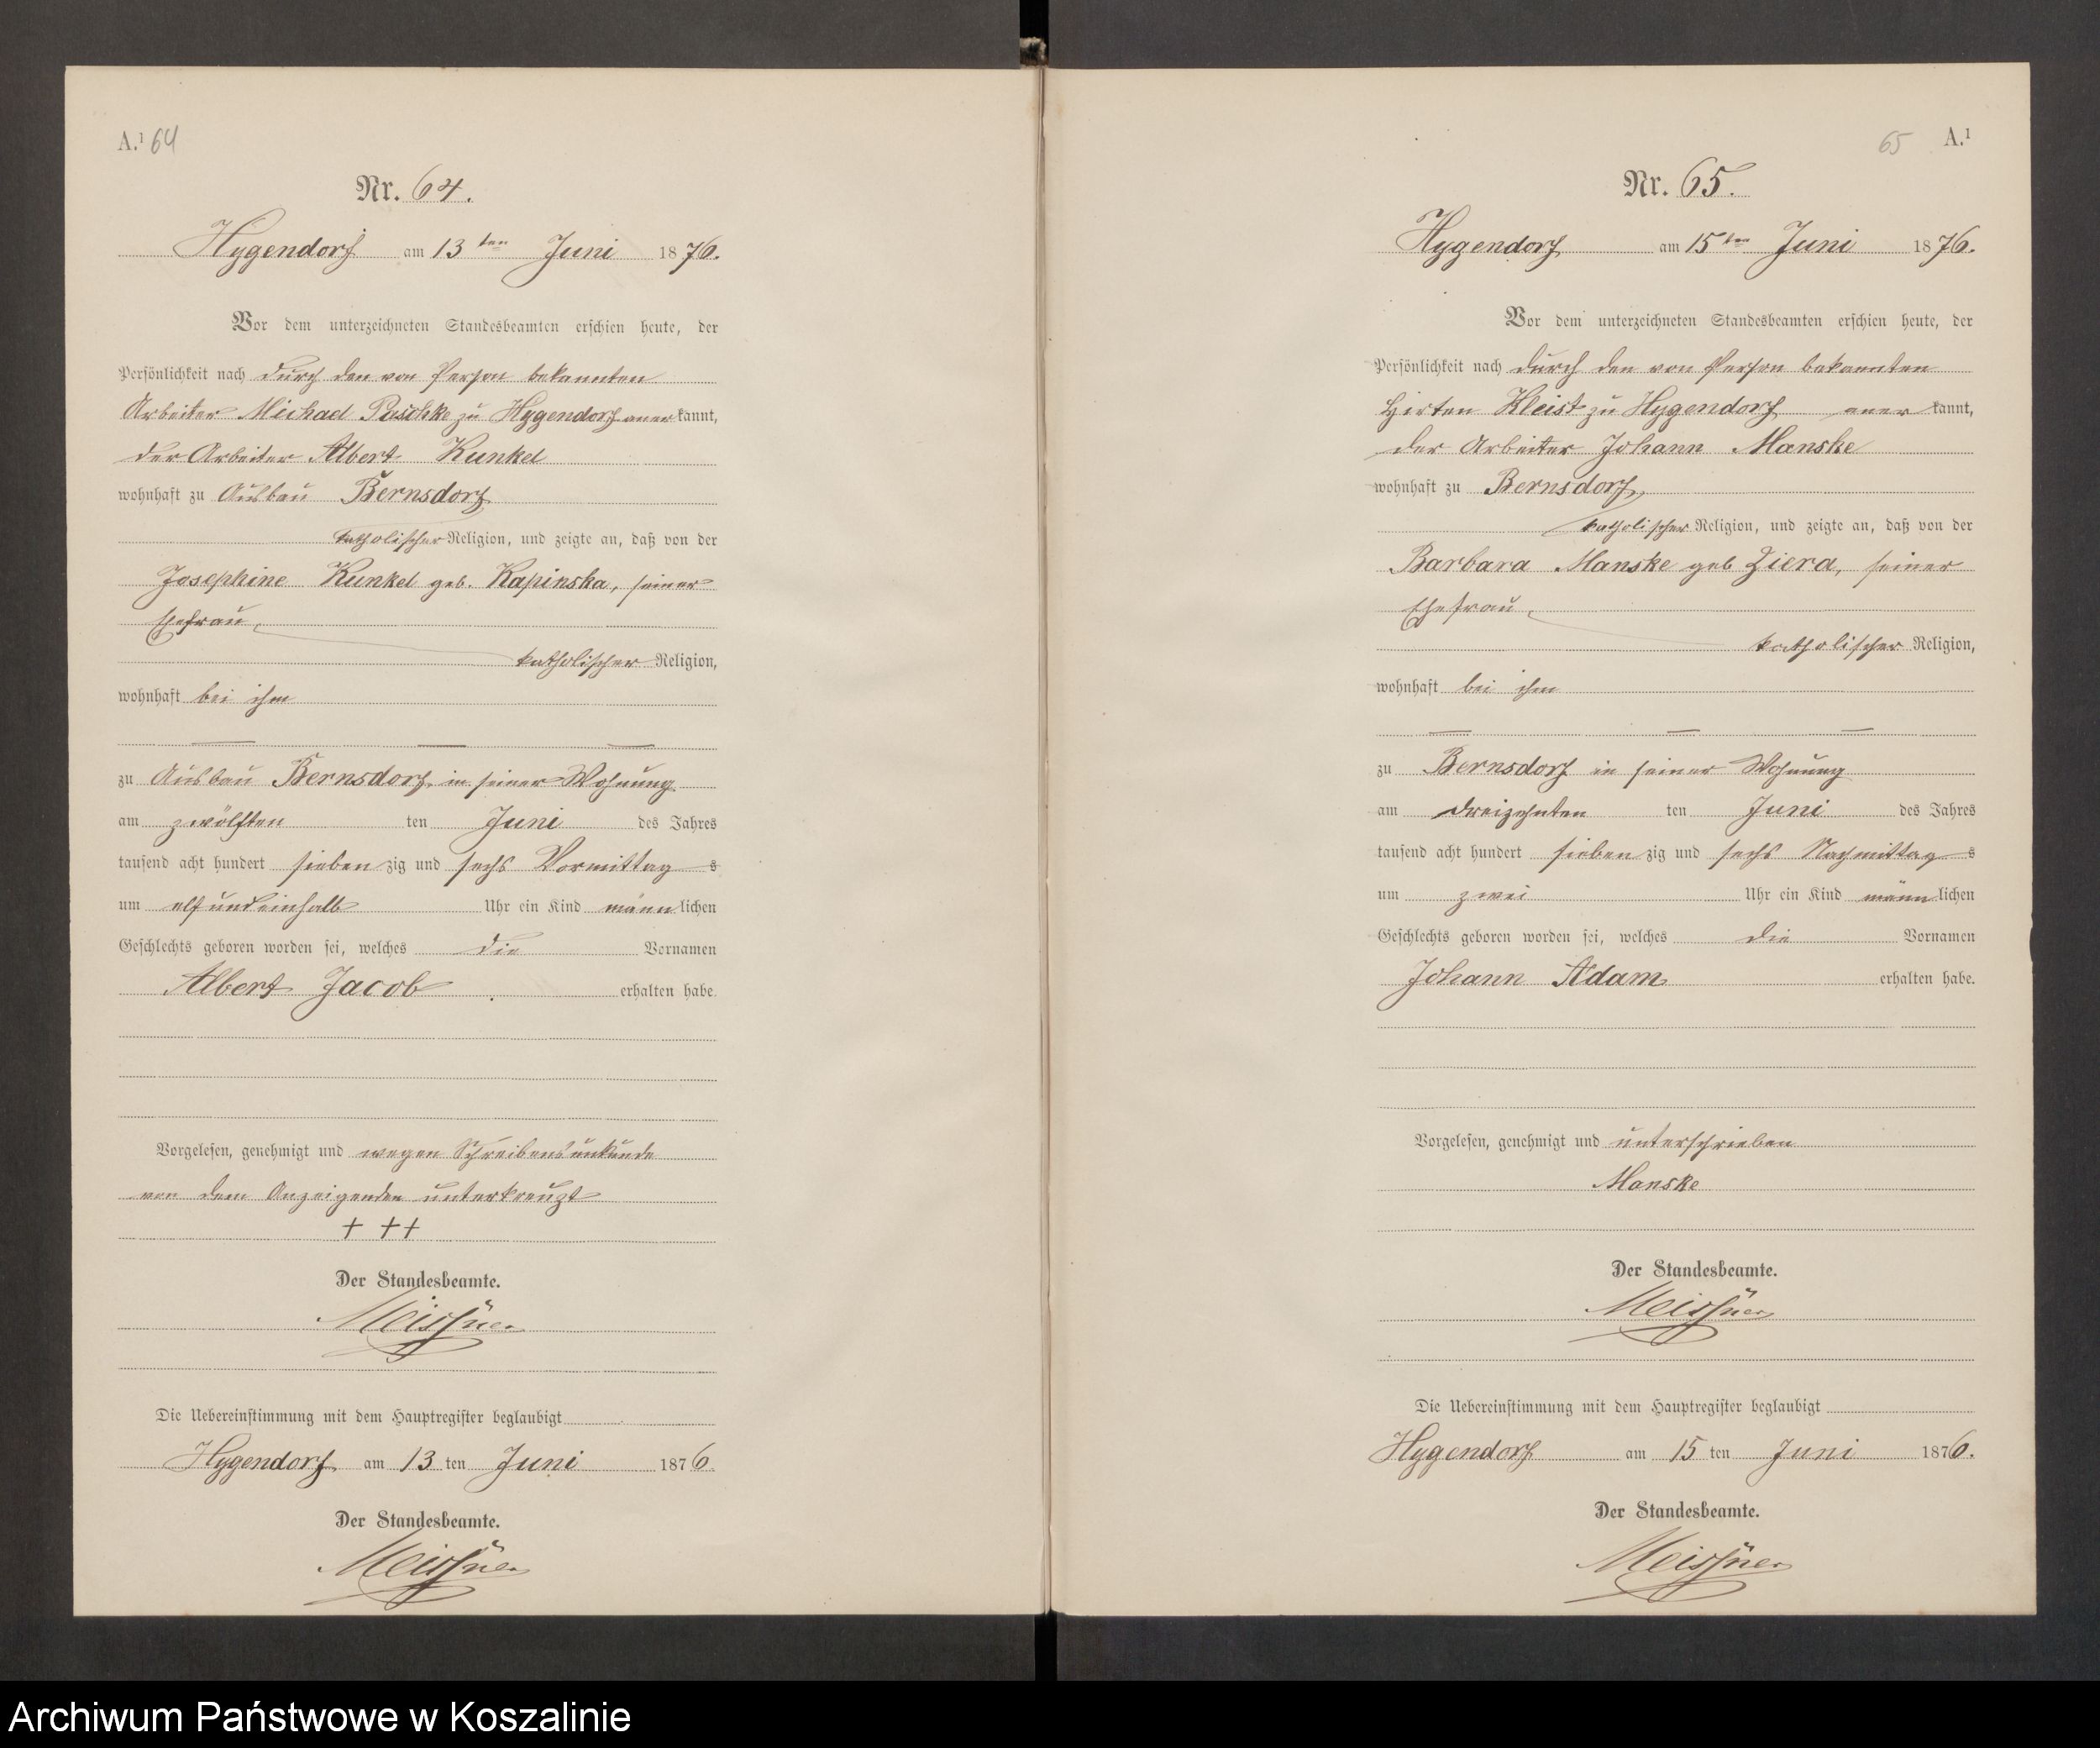 A.¹ 64
Nr. 64.
Hygendorf am 13 ten Juni 1876.
Vor dem unterzeichneten Standesbeamten erschien heute, der
Persönlichkeit nach durch den von Person bekannten
Arbeiter Michael Paschke zu Hygendorf anerkannt,
der Arbeiter Albert Kunkel
wohnhaft zu Ausbau Bernsdorf
katholischer Religion, und zeigte an, daß von der
Josephine Kunkel geb. Kapinska, seiner
Ehefrau,
katholischer Religion,
wohnhaft bei ihm
zu Ausbau Bernsdorf in seiner Wohnung
am zwölften ten Juni des Jahres
tausend acht hundert siebenzig und sechs Vormittags
um elfundeinhalb Uhr ein Kind männlichen
Geschlechts geboren worden sei, welches die Vornamen
Albert Jacob erhalten habe.
Vorgelesen, genehmigt und wegen Schreibensunkunde
von dem Anzeigenden unterkreuzt
+ ++
Der Standesbeamte.
Meissner
Die Uebereinstimmung mit dem Hauptregister beglaubigt
Hygendorf am 13 ten Juni 1876.
Der Standesbeamte.
Meissner
65 A.¹
Nr. 65.
Hygendorf am 15 ten Juni 1876.
Vor dem unterzeichneten Standesbeamten erschien heute, der
Persönlichkeit nach durch den von Person bekannten
Hirten Kleist zu Hygendorf anerkannt,
der Arbeiter Johann Manske
wohnhaft zu Bernsdorf,
katholischer Religion, und zeigte an, daß von der
Barbara Manske geb Ziera, seiner
Ehefrau,
katholischer Religion,
wohnhaft bei ihm
zu Bernsdorf in seiner Wohnung
am dreizehnten ten Juni des Jahres
tausend acht hundert siebenzig und sechs Nachmittags
um zwei Uhr ein Kind männlichen
Geschlechts geboren worden sei, welches die Vornamen
Johann Adam erhalten habe.
Vorgelesen, genehmigt und unterschrieben
Manske
Der Standesbeamte.
Meissner
Die Uebereinstimmung mit dem Hauptregister beglaubigt
Hygendorf am 15 ten Juni 1876.
Der Standesbeamte.
Meissner
Archiwum Państwowe w Koszalinie